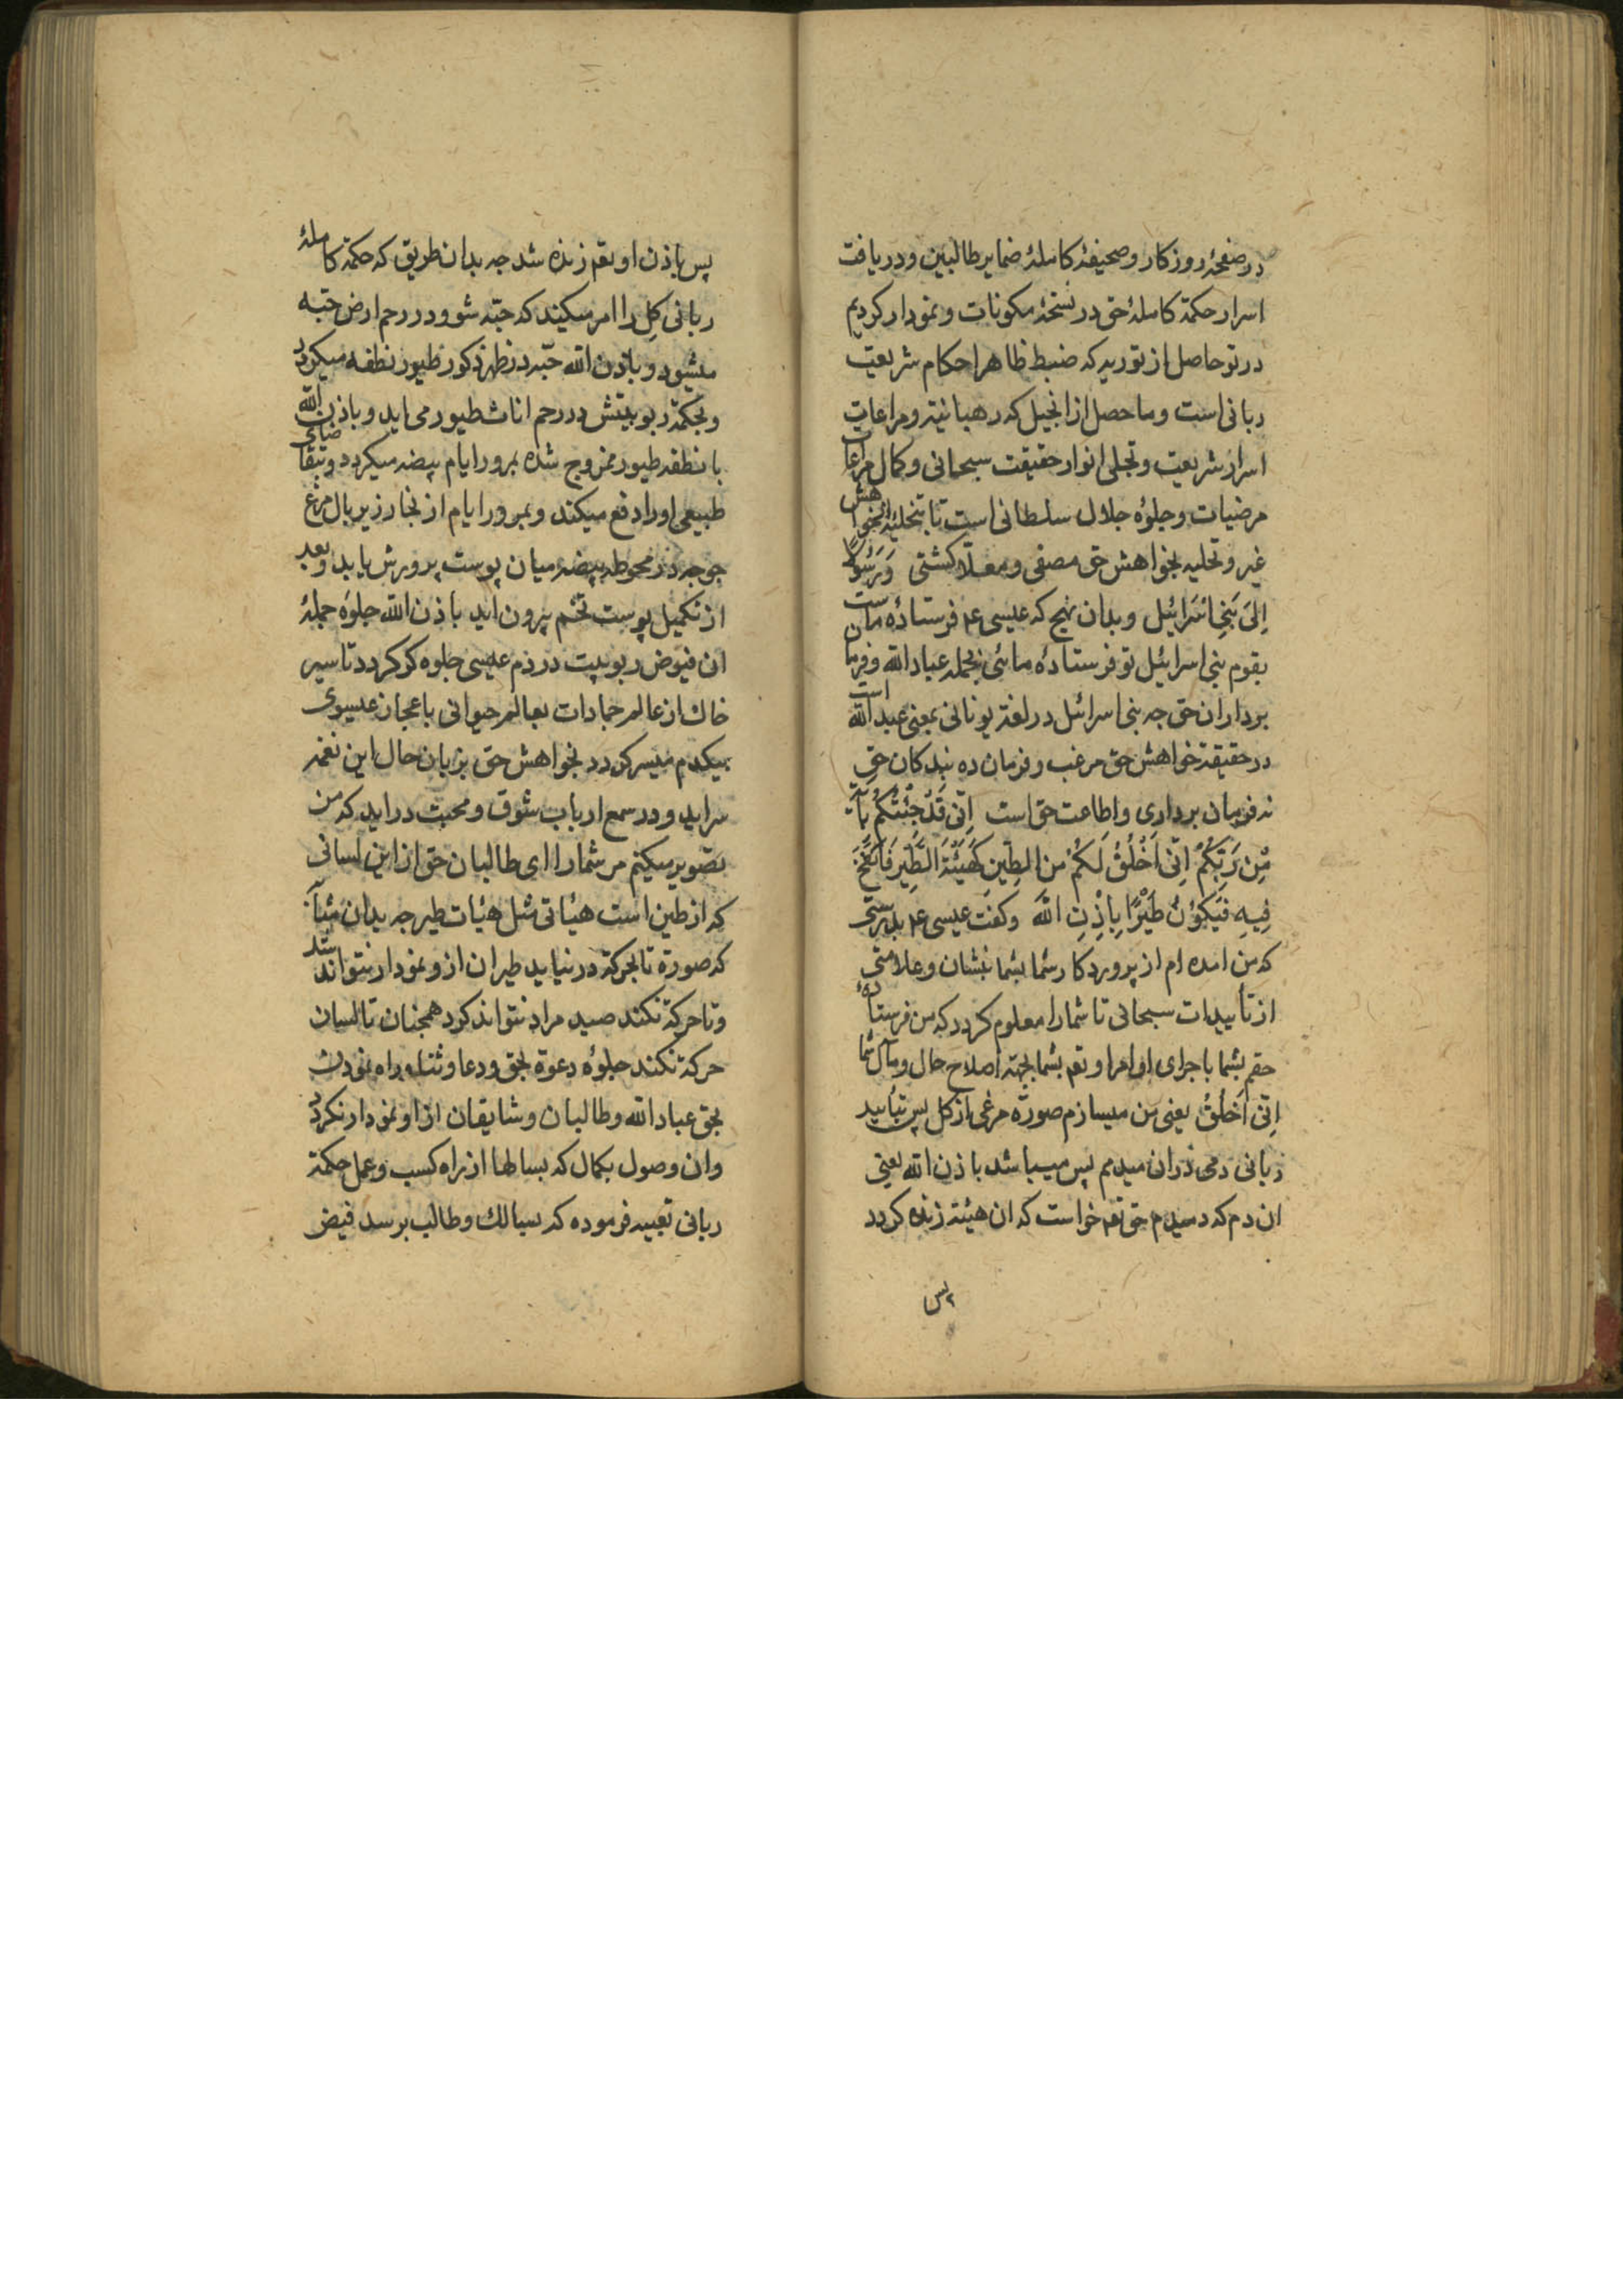 در صفحهٔ روزکار و صحیفهٔ کاملهٔ ضمایر طالبین و دریافت
اسرار حکمة کاملهٔ حق در نسخهٔ مکونات و نمودار کردیم
در تو حاصل از توریه که ضبط ظاهر احکام شریعت
ربانی است و ماحصل از انجیل که رهبانیته و مراعات
اسرار شریعت و تجلی انوار حقیقت سبحانی و کمال مراعات
مرضیات و جلوهٔ جلال سلطانی است تا بتخلیه از خواهش
غیر و تحلیه بخواهش حق مصفی و معلّا کشتی وَرَسُولًا
اِلیَ بَنِی اِسْرَائیلَ وبدان نهج که عیسی ع م فرستادهٔ ماست
بقوم بنی اسرایٔیل تو فرستادهٔ مائی بجملهٔ عباد الله و فرمان
برداران حق چه بنی اسرائیل در لغة یونانی بمعنی عبد الله است
در حقیقة خواهش حق مرغب و فرمان ده بندکان حق
نه فرمان برداری و اطاعت حق است اِنّی قَدْ جِئْتُکُمْ بِآیَةٍ
مِّن رَبِّکُمْ اِنّی اَخْلُقُ لَکُمْ من الطِّینِ کَهَیْئَةِ الطَّیْرِ فَاَنْفُخُ
فِیهِ فَیَکُوْنُ طَیْرًا بِاِذْنِ اللّهِ وکفت عیسی ع م بدرستی
که من امده ام از پروردکار شما بشما بنشان و علامتی
از تأییدات سبحانی تا شما را معلوم کردد که من فرستادهٔ
حقم بشما با جرای اوامر او تعم بشما بجهة اصلاح حال و مآل شما
اِنّی اَخْلُقُ یعنی من میسازم صورة مرغی از کل پس بتأیید
ربانی دمی در ان میدمم پس میباشد باذن الله یعنی
ان دم که دمیدم حق تعم خواست که ان هیئة زنده کردد
پس
پس باذن او تعم زنده شد چه بدان طریق که حکمة کاملهٔ
ربانی کِل را امر میکند که حبّه شو و در رحم ارض حبّه
میشود و باذن الله حبّه در ظهر ذکور طیور نطفه میکردد
وبحکمة ربوبیتش در رحم اناث طیور می اید و باذن الله
با نطفه طیور ممزوج شده بمرور ایام بیضه میکردد و بتقاضای
طبیعی او را دفع میکند و بمرور ایام از بخار زیر بال مرغ
جوجه در محوطه بیضهٔ میان پوست پرورش یابد و بعد
از تکمیل پوست تخم بیرون اید باذن الله جلوهٔ جملهٔ
ان فیوض ربوبیت در دم عیسی جلوه کر کردد تا سیر
خاک از عالم جمادات بعالم حیوانی باعجاز عیسوی
بیکدم میسر کردد بخواهش حق بزبان حال این نغمه
سراید و در سمع ارباب شوق و محبت در اید که من
تصویر میکنم مر شما را ای طالبان حق از این لسانی
که از طین است هیئاتی مثل هیئات طیر چه بدان مثابه
که صورة تا بحرکة در نیاید طیران از و نمودار نتواند شد
و تا حرکة نکند صید مراد نتواند کرد همچنان تا لسان
حرکة نکند جلوهٔ دعوة بحق و دعا و ثنا و راه نمودن
بحق عباد الله و طالبان و شایقان از او نمودار نکردد
وان وصول بکمال که بسالها از راه کسب و عمل حکمة
ربانی تعبیه فرموده که بسالک و طالب برسد فیض